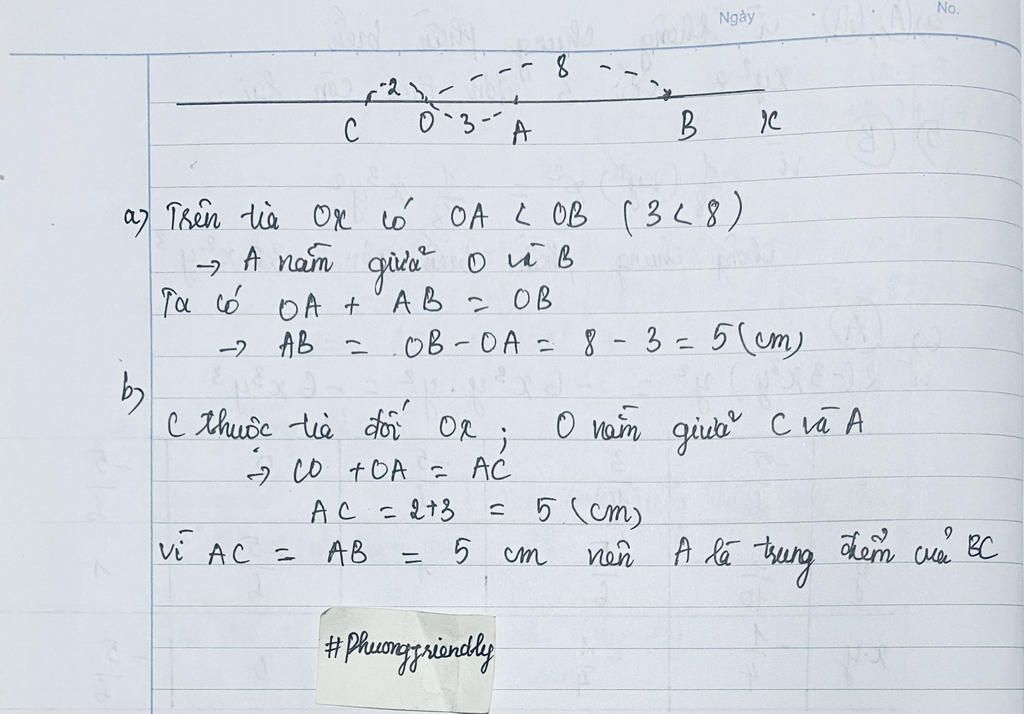 Ngày
No.
2 8
C O 3 A B x
a) Trên tia Ox có OA < OB (3 < 8)
→ A nằm giữa O và B
Ta có OA + AB = OB
→ AB = OB - OA = 8 - 3 = 5 (cm)
b)
C thuộc tia đối Ox ; O nằm giữa C và A
→ CO + OA = AC
AC = 2+3 = 5 (cm)
vì AC = AB = 5 cm nên A là trung điểm của BC
#Phuongfriendly